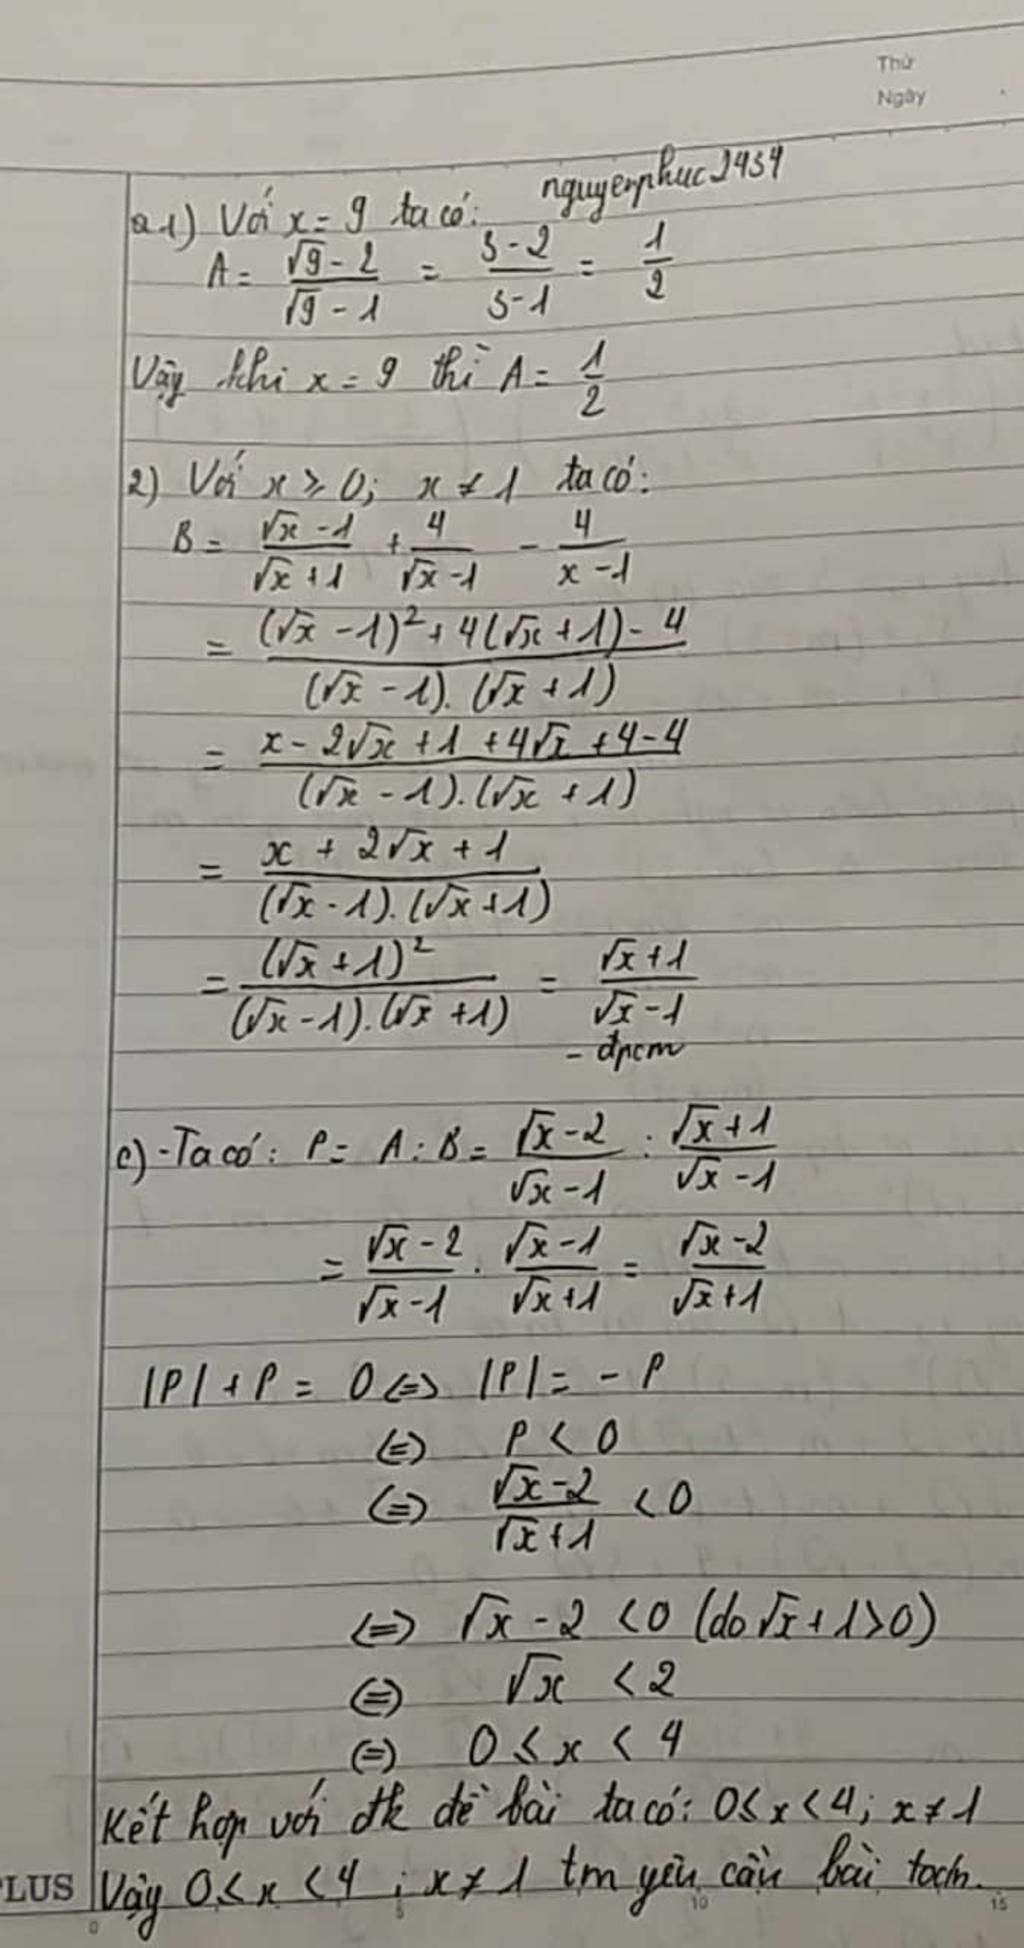 Thứ
Ngày
nguyenphuc2434
a.1) Với x = 9 ta có:
A = (√9 - 2)/(√9 - 1) = (3 - 2)/(3 - 1) = 1/2
Vậy khi x = 9 thì A = 1/2
2) Với x ≥ 0; x ≠ 1 ta có:
B = (√x - 1)/(√x + 1) + 4/(√x - 1) - 4/(x - 1)
= ((√x - 1)² + 4(√x + 1) - 4)/((√x - 1).(√x + 1))
= (x - 2√x + 1 + 4√x + 4 - 4)/((√x - 1).(√x + 1))
= (x + 2√x + 1)/((√x - 1).(√x + 1))
= (√x + 1)²/((√x - 1).(√x + 1)) = (√x + 1)/(√x - 1)
- đpcm
c) - Ta có: P = A : B = (√x - 2)/(√x - 1) : (√x + 1)/(√x - 1)
= (√x - 2)/(√x - 1) . (√x - 1)/(√x + 1) = (√x - 2)/(√x + 1)
|P| + P = 0 (=) |P| = - P
(=) P < 0
(=) (√x - 2)/(√x + 1) < 0
(=) √x - 2 < 0 (do √x + 1 > 0)
(=) √x < 2
(=) 0 ≤ x < 4
Kết hợp với đk đề bài ta có: 0 ≤ x < 4; x ≠ 1
Vậy 0 ≤ x < 4 ; x ≠ 1 tm yêu cầu bài toán.
PLUS
0 5 10 15